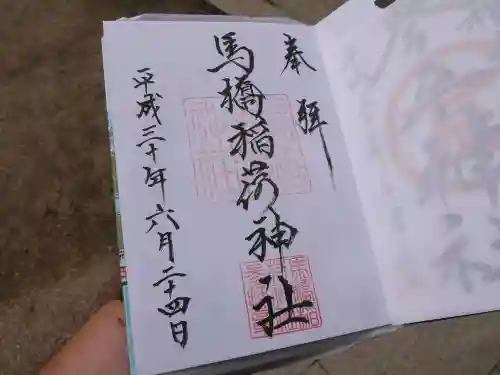 奉拝
馬橋稲荷神社
平成三十年六月二十四日